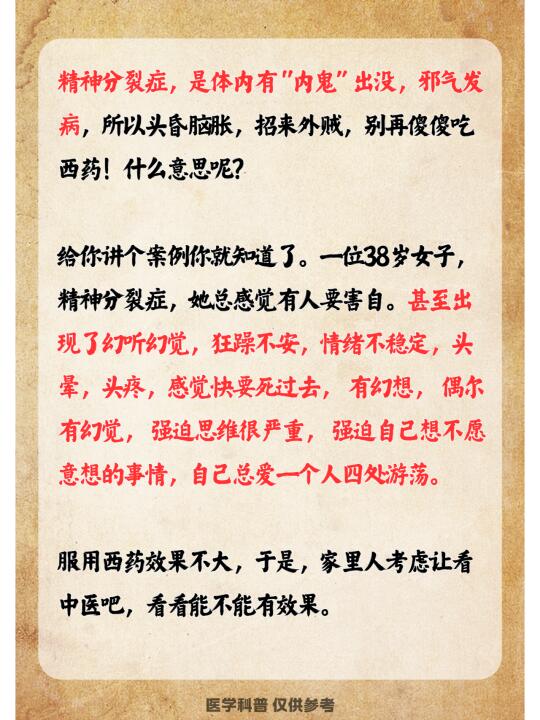 精神分裂症，是体内有"内鬼"出没，邪气发
病，所以头昏脑胀，招来外贼，别再傻傻吃
西药！什么意思呢？
给你讲个案例你就知道了。一位38岁女子，
精神分裂症，她总感觉有人要害自。甚至出
现了幻听幻觉，狂躁不安，情绪不稳定，头
晕，头疼，感觉快要死过去， 有幻想， 偶尔
有幻觉， 强迫思维很严重， 强迫自己想不愿
意想的事情，自己总爱一个人四处游荡。
服用西药效果不大，于是，家里人考虑让看
中医吧，看看能不能有效果。
医学科普 仅供参考